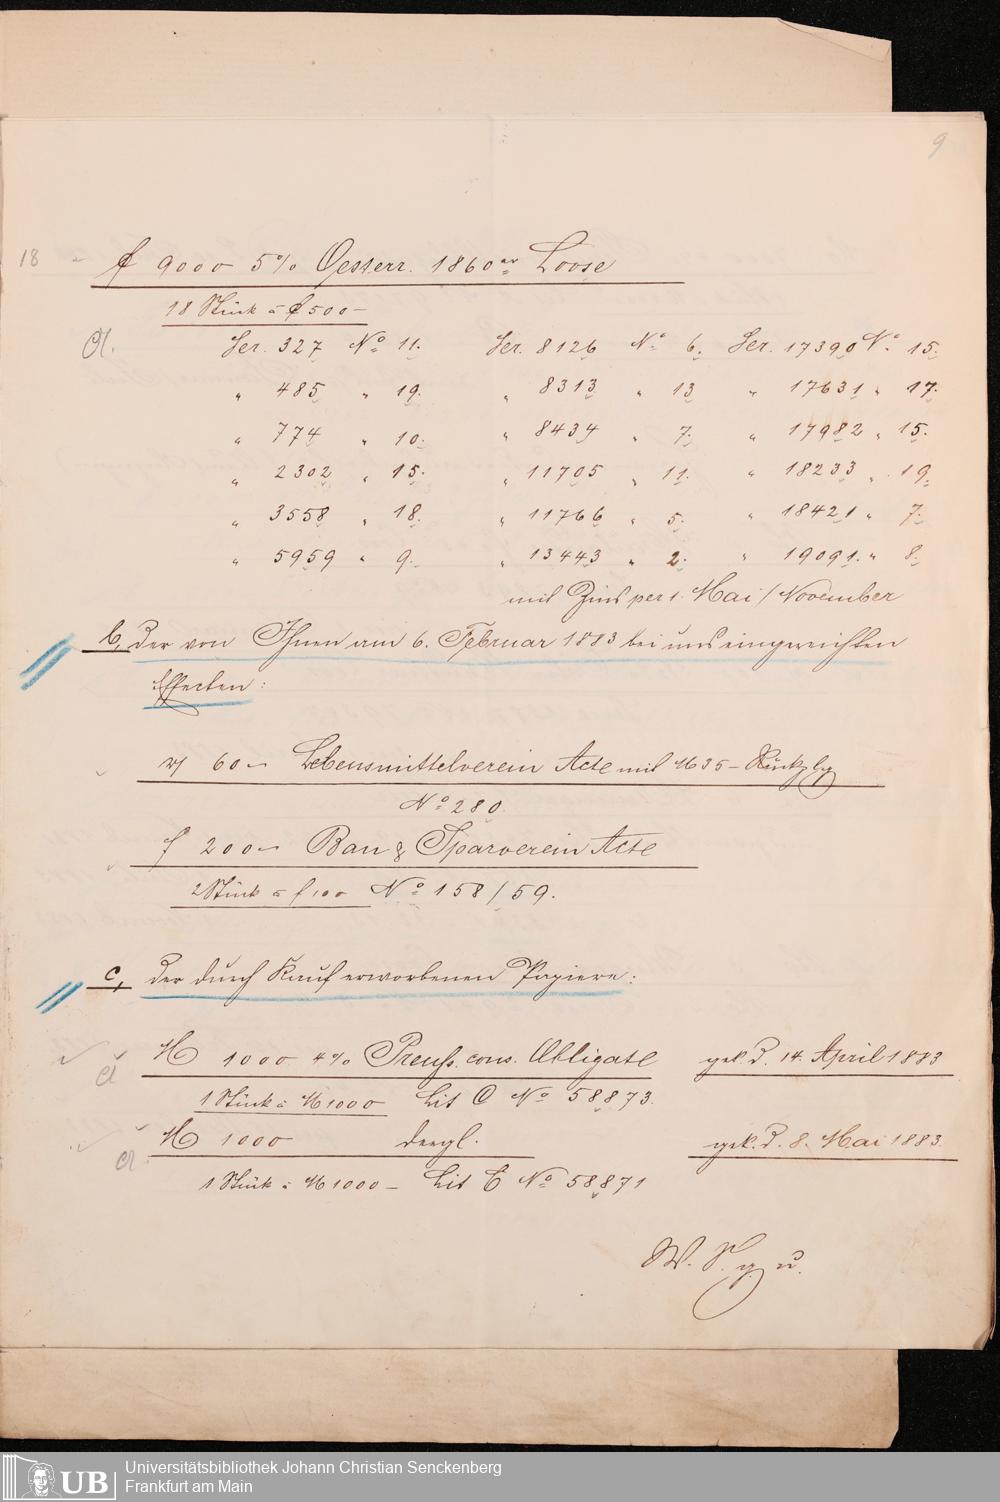 9
18 f 9000 5% Oesterr. 1860er Loose
18 Stück à f 500 –
Ser. 327 No 11. Ser. 8126 No 6. Ser. 17390 No 15.
" 485 " 19. " 8313 " 13 " 17631 " 17.
" 774 " 10. " 8434 " 7. " 17982 " 15.
" 2302 " 15. " 11705 " 11. " 18233 " 19.
" 3558 " 18. " 11766 " 5. " 18421 " 7.
" 5959 " 9. " 13443 " 2. " 19091. " 8.
mit Zins per 1. Mai / November
b, der von Ihnen am 6. Februar 1883 bei uns eingereichten
Effecten:
60 – Lebensmittelverein Actie mit M 35 – Rückzlg
No 280.
f 200 – Bau & Sparverein Actie
2 Stück à f 100 No 158/59.
c, der durch Kauf erworbenen Papiere:
M 1000 4% Preuss. cons. Obligate gek. d. 14. April 1883
1 Stück à M 1000 Lit C No 58873.
M 1000 dergl. gek. d. 8. Mai 1883.
1 Stück à M 1000 – Lit C No 58871
W. S. g. u.
Universitätsbibliothek Johann Christian Senckenberg
Frankfurt am Main
UB